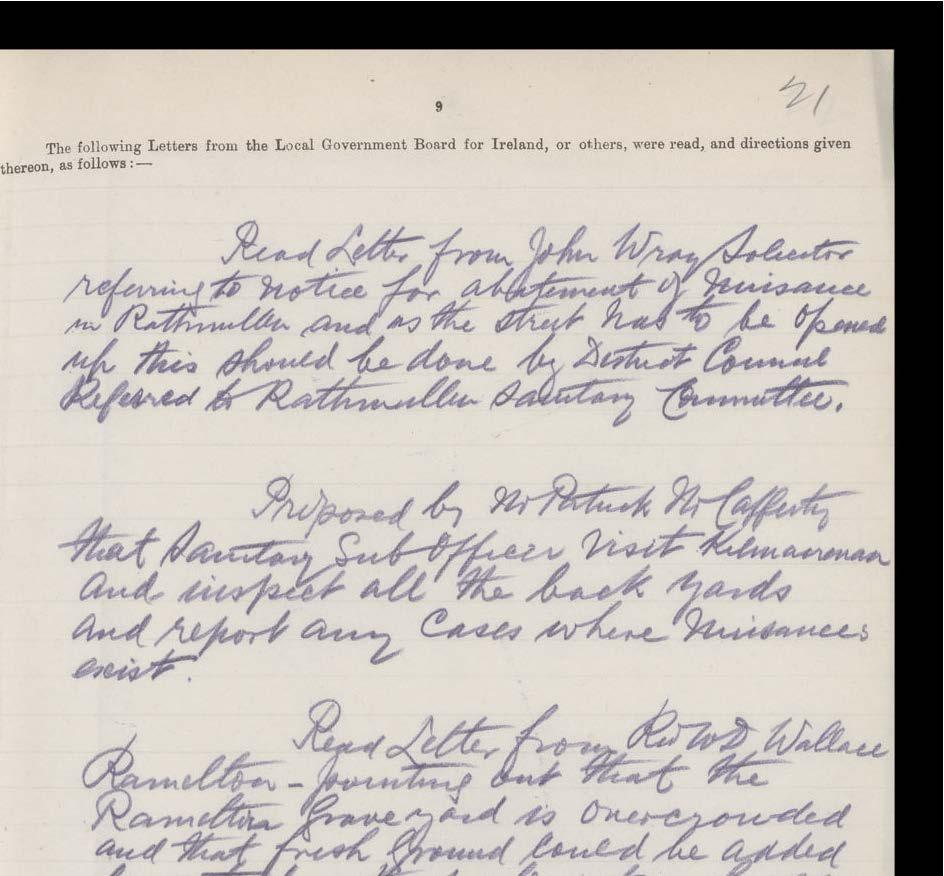 9
21
The following Letters from the Local Government Board for Ireland, or others, were read, and directions given
thereon, as follows:—
Read Letter from John Wray Solicitor
referring to notice for abatement of Nuisance
in Rathmullen and as the street has to be opened
up this should be done by District Council
Referred to Rathmullen Sanitary Committee.
Proposed by Mr Patrick McCafferty
that Sanitary Sub Officer visit Kilmacrenan
and inspect all the back yards
and report any Cases where Nuisances
exist.
Read Letter from Rev WD Wallace
Ramelton - pointing out that the
Ramelton Graveyard is overcrowded
and that fresh Ground could be added